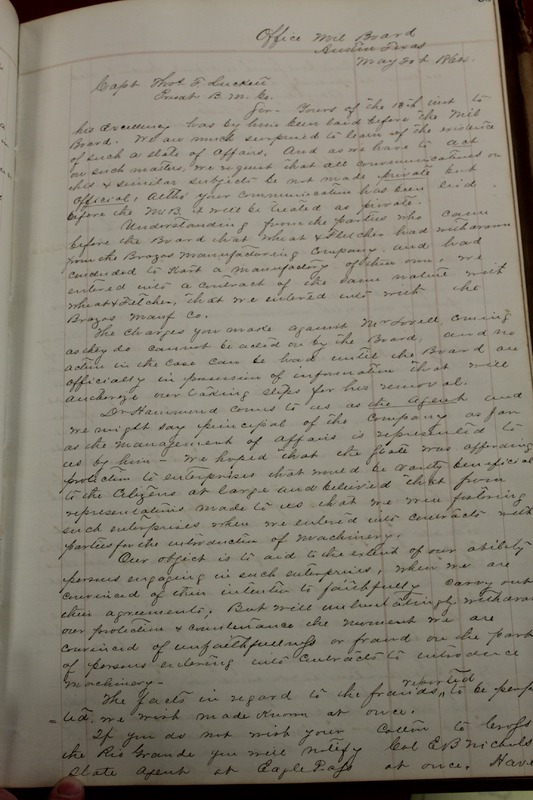 Office Mil Board
Austin Texas
May 20th 1864.
Capt Thos F. Luckett
Presdt B. M. Co.
Sir - Yours of the 13th inst to
his Excellency has by him been laid before the Mil
Board. We are much surprised to learn of the existence
of such a state of affairs. And as we have to act
on such matters, we request that all communications on
this & similar subjects be not made private but
official, Altho your communication has been laid
before the M.B. it will be treated as private.
Understanding from the parties who came
before the Board that Wheat & Fletcher had withdrawn
from the Brazos Manufacturing Company and had
concluded to start a manufactory of their own, we
entered into a contract of the same nature with
Wheat & Fletcher, that we entered into with the
Brazos Manf Co.
The charges you made against Mr Lovell, coming
as they do cannot be acted on by the Board, and no
action in the case can be had until the Board are
officially in possession of information that will
authorize our taking steps for his removal.
Dr Hammond comes to us as the Agent and
we might say principal of the Company as far
as the management of affairs is represented to
us by him - We hoped that the State was affording
protection to enterprises that would be vastly beneficial
to the Citizens at large and believed that from
representations made to us that we were fostering
such enterprises when we entered into contracts with
parties for the introduction of Machinery.
Our object is to aid to the extent of our ability
persons engaging in such enterprises, when we are
convinced of their intention to faithfully carry out
their agreements; But will unhesitatingly withdraw
our protection & countenance the moment we are
convinced of unfaithfulness or fraud on the part
of persons entering into Contracts to introduce
Machinery -
The facts in regard to the frauds, reported to be perpe
= ted. we wish made known at once.
If you do not wish your Cotton to cross
the Rio Grande you will notify Col E B Nichols
State Agent at Eagle Pass at once. Have